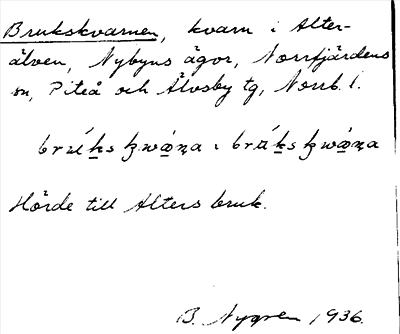 Brukskvarnen, kvarn i Alter-
älven, Nybyns ägor, Norrfjärdens
sn, Piteå och Älvsby tg, Norrb. l.
Hörde till Alters bruk.
B. Nygren 1936.